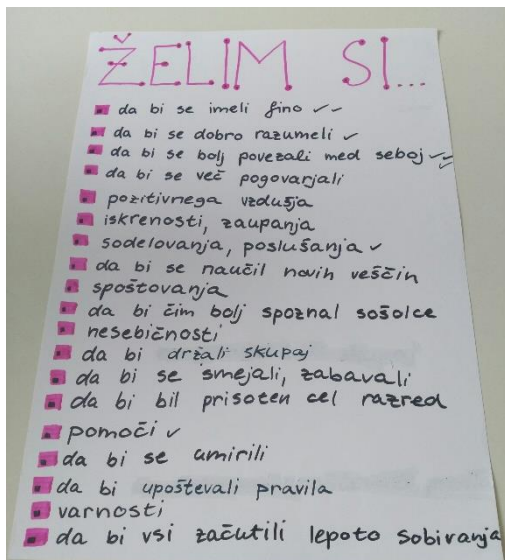 ŽELIM SI...
da bi se imeli fino ✓ ✓
da bi se dobro razumeli ✓
da bi se bolj povezali med seboj ✓ ✓
da bi se več pogovarjali
pozitivnega vzdušja
iskrenosti, zaupanja
sodelovanja, poslušanja ✓
da bi se naučil novih veščin
spoštovanja
da bi čim bolj spoznal sošolce
nesebičnosti
da bi držali skupaj
da bi se smejali, zabavali
da bi bil prisoten cel razred
pomoči ✓
da bi se umirili
da bi upoštevali pravila
varnosti
da bi vsi začutili lepoto sobivanja